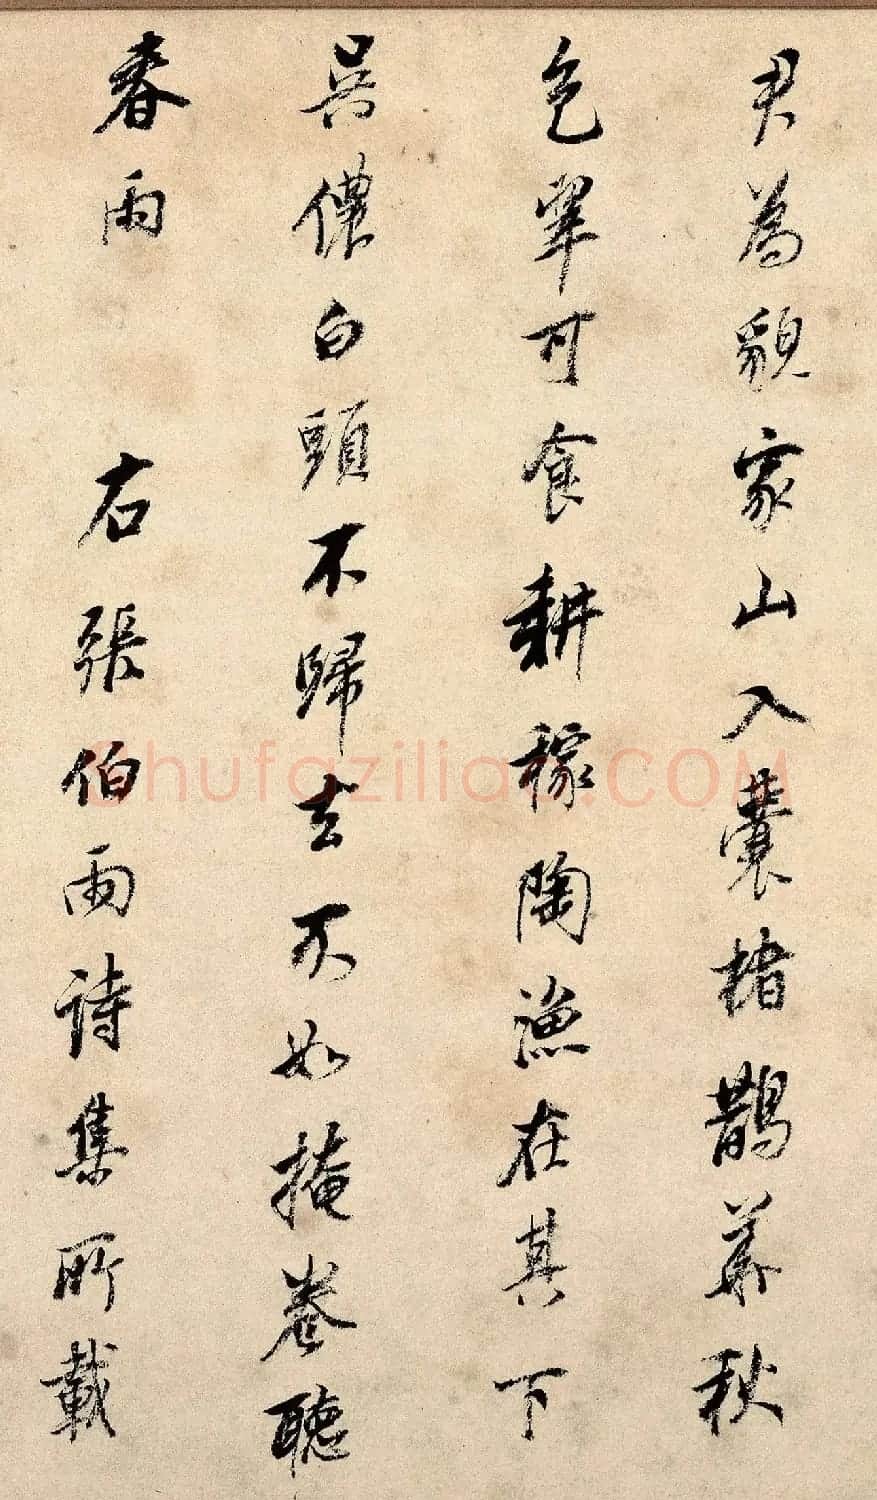 尹為貌家山入囊楮鵲華秋
色翠可食耕稼陶漁在其下
吳儂白頭不歸去不如掩卷聽
春雨
右張伯雨詩集所載
Shufazilian.COM